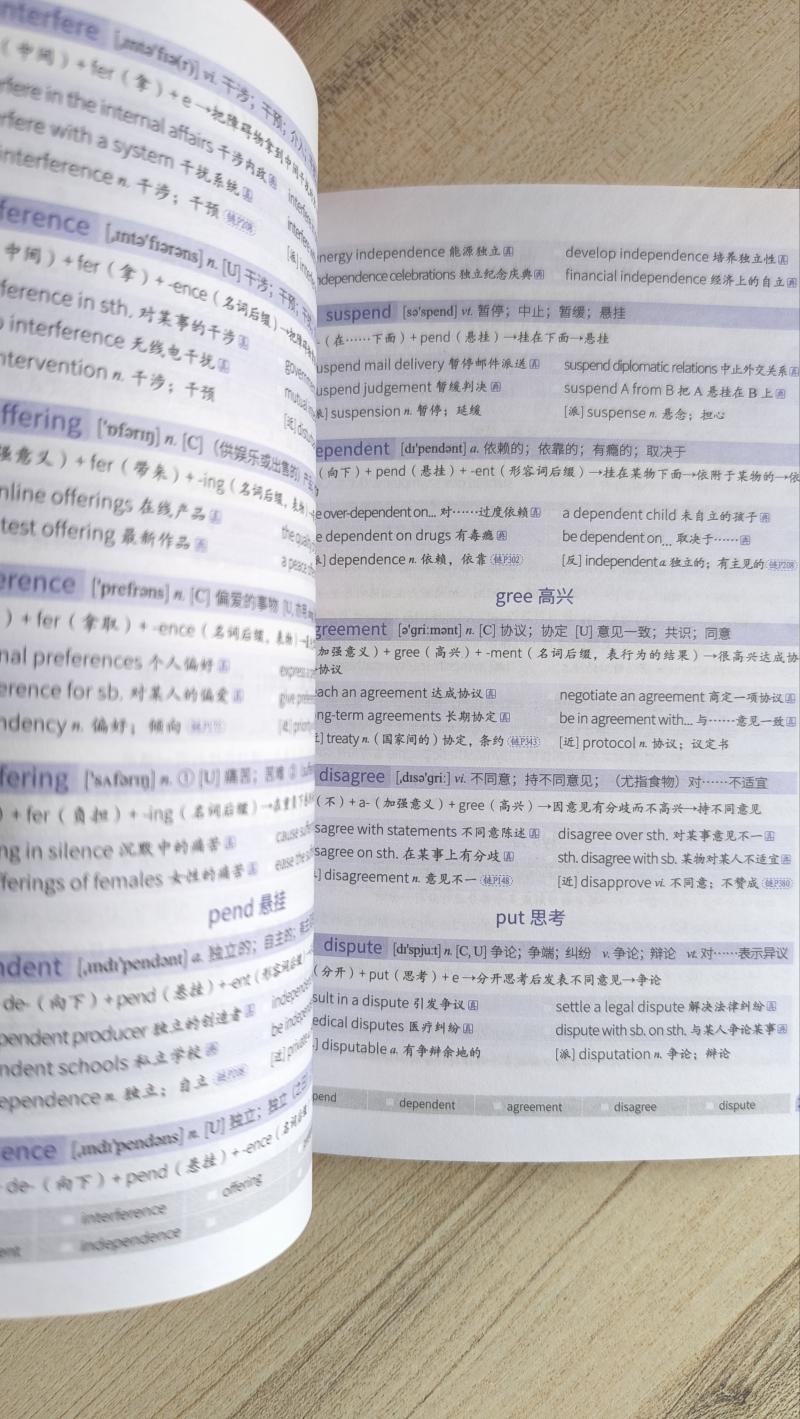 nterfere [ˌɪntəˈfɪə(r)] vi. 干涉；干预；介入；
（中间）+ fer（拿）+ e→把障碍物拿到中间干扰
rfere in the internal affairs 干涉内政
rfere with a system 干扰系统
interference n. 干涉；干预
ference [ˌɪntəˈfɪərəns] n. [U] 干涉；干预；干
中间）+ fer（拿）+ -ence（名词后缀）→把障碍
ference in sth. 对某事的干涉
interference 无线电干扰
ntervention n. 干涉；干预
ffering [ˈɒfərɪŋ] n. [C]（供娱乐或出售的）产品
强意义）+ fer（带来）+ -ing（名词后缀，表物）
nline offerings 在线产品
test offering 最新作品
a peace
erence [ˈprefrəns] n. [C] 偏爱的事物
）+ fer（拿取）+ -ence（名词后缀，表物）
nal preferences 个人偏好
erence for sb. 对某人的偏爱
ndency n. 偏好；倾向
ffering [ˈsʌfərɪŋ] n. ① [U] 痛苦；苦难 ②
+ fer（负担）+ -ing（名词后缀）
ng in silence 沉默中的痛苦
fferings of females 女性的痛苦
pend 悬挂
ndent [ˌɪndɪˈpendənt] a. 独立的；自主的；
de-（向下）+ pend（悬挂）+ -ent（形容词后缀）
pendent producer 独立的创造者
ndent schools 私立学校
ependence n. 独立；自立
ence [ˌɪndɪˈpendəns] n. [U] 独立；独立
de-（向下）+ pend（悬挂）+ -ence（名词后缀）
interference offering
independence
nergy independence 能源独立 develop independence 培养独立性
ndependence celebrations 独立纪念庆典 financial independence 经济上的自立
suspend [səˈspend] vt. 暂停；中止；暂缓；悬挂
（在……下面）+ pend（悬挂）→挂在下面→悬挂
uspend mail delivery 暂停邮件派送 suspend diplomatic relations 中止外交关系
uspend judgement 暂缓判决 suspend A from B 把 A 悬挂在 B 上
] suspension n. 暂停；延缓 [派] suspense n. 悬念；担心
ependent [dɪˈpendənt] a. 依赖的；依靠的；有瘾的；取决于
（向下）+ pend（悬挂）+ -ent（形容词后缀）→挂在某物下面→依附于某物的→依
e over-dependent on... 对……过度依赖 a dependent child 未自立的孩子
e dependent on drugs 有毒瘾 be dependent on... 取决于……
] dependence n. 依赖，依靠 链P302 [反] independent a. 独立的；有主见的 链P208
gree 高兴
greement [əˈɡriːmənt] n. [C] 协议；协定 [U] 意见一致；共识；同意
加强意义）+ gree（高兴）+ -ment（名词后缀，表行为的结果）→很高兴达成协
协议
ach an agreement 达成协议 negotiate an agreement 商定一项协议
ng-term agreements 长期协定 be in agreement with... 与……意见一致
] treaty n.（国家间的）协定，条约 链P343 [近] protocol n. 协议；议定书
disagree [ˌdɪsəˈɡriː] vi. 不同意；持不同意见；（尤指食物）对……不适宜
（不）+ a-（加强意义）+ gree（高兴）→因意见有分歧而不高兴→持不同意见
sagree with statements 不同意陈述 disagree over sth. 对某事意见不一
sagree on sth. 在某事上有分歧 sth. disagree with sb. 某物对某人不适宜
] disagreement n. 意见不一 链P148 [近] disapprove vi. 不同意；不赞成 链P380
put 思考
dispute [dɪˈspjuːt] n. [C, U] 争论；争端；纠纷 v. 争论；辩论 vt. 对……表示异议
（分开）+ put（思考）+ e→分开思考后发表不同意见→争论
sult in a dispute 引发争议 settle a legal dispute 解决法律纠纷
edical disputes 医疗纠纷 dispute with sb. on sth. 与某人争论某事
] disputable a. 有争辩余地的 [派] disputation n. 争论；辩论
pend dependent agreement disagree dispute